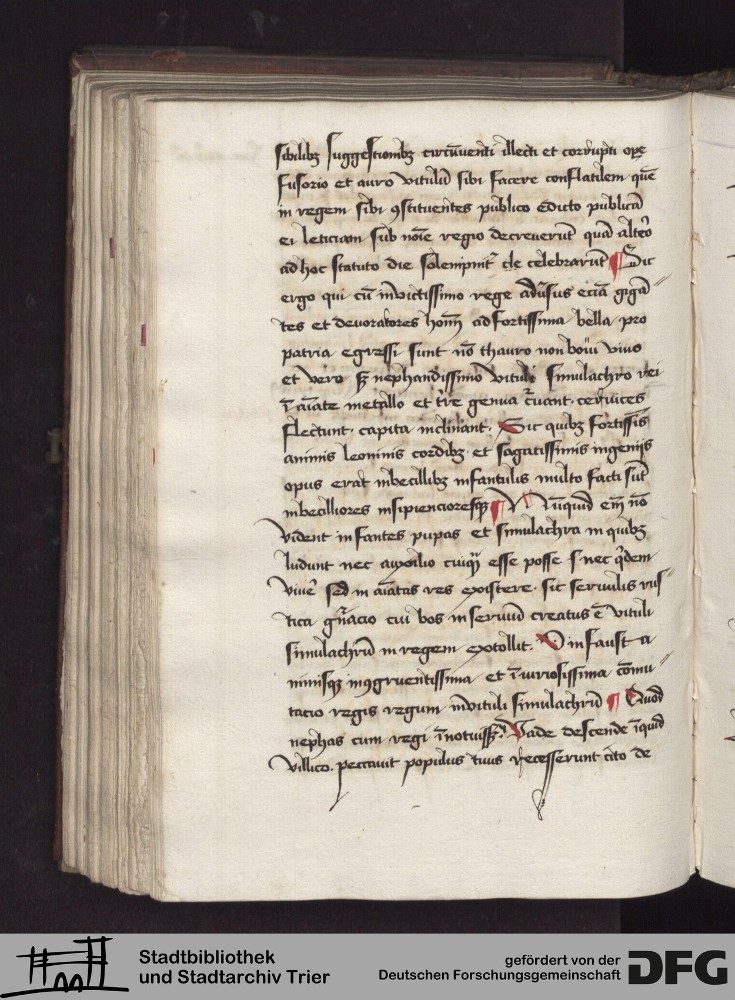 sibilibꝫ suggestionibꝫ circūventi illecti et corrupti ope
fusorio et auro vitulū sibi facere conflatilem quē
in regem sibi ꝯstituentes publico edicto publicā
ei leticiam sub noīe regio decreverūt quā altēo
ad hoc statuto die solempnit' celebrarūt ¶ Sic
ergo qui cū invictissimo rege adūsus eciā gigā
tes et devoratores hoīm ad fortissima bella pro
patria egressi sunt nō thauro non bovi vivo
et vero sꝫ nephandissimo vituli simulachro rei
īaīate metallo et tre genua cūant cervices
flectunt capita inclinant. Sic quibꝫ fortissīs
animis leoninis cordibꝫ et sagatissimis ingenijs
opus erat inbecillibꝫ infantulis multo facti sūt
inbecilliores insipiencioresqꝫ ¶ Nūquid em̄ nō
vident infantes pupas et simulachra in quibꝫ
ludunt nec auxilio cuiqꝫ esse posse sꝫ nec q̄dem
vivē sed inaīatas res existere. sic servilis rus
tica gn̄acio cui bos in servum creatus ē vituli
simulachrū in regem extollit. O infausta
nimisqꝫ inꝯgruentissima et īiuriosissima cōmu
tacio regis regum in vituli simulachrū ¶ Quod
nephas cum regi īnotuissꝫ. Vade descende īquid
villico. peccavit populus tuus recesserunt cito de
Stadtbibliothek
und Stadtarchiv Trier
gefördert von der
Deutschen Forschungsgemeinschaft
DFG